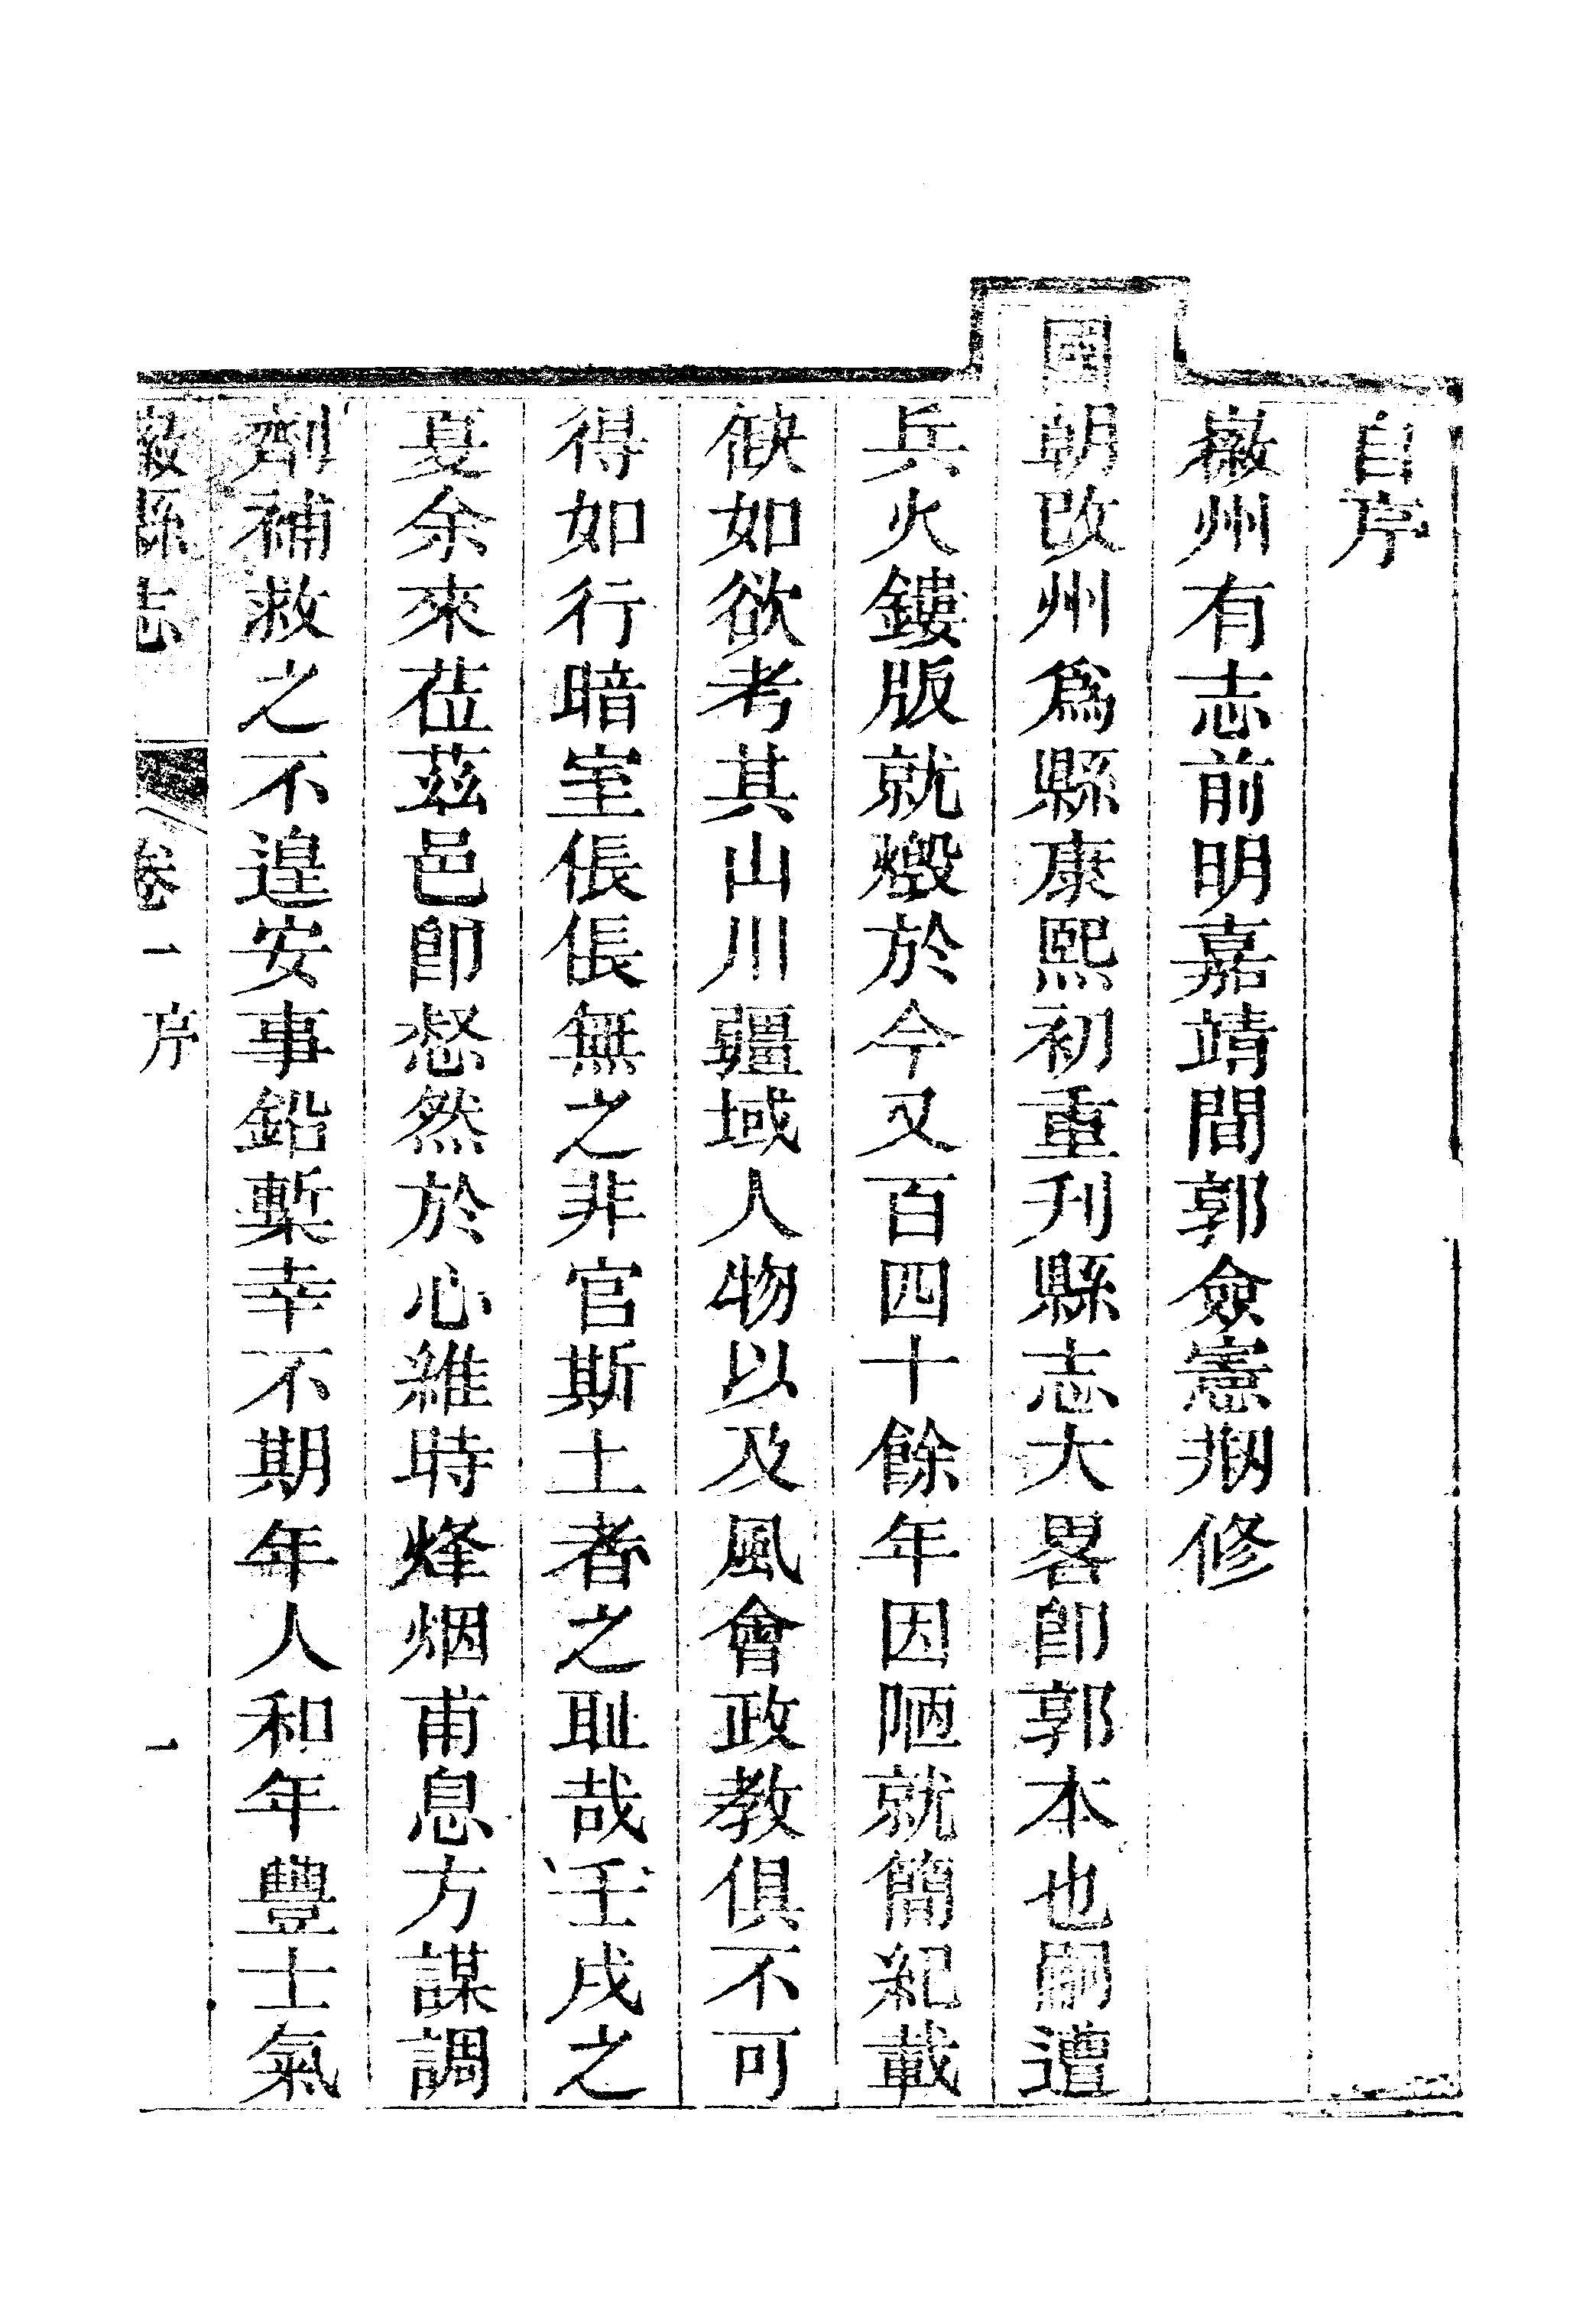 自序
徽州有志前明嘉靖間郭僉憲剏修
國朝改州爲縣康熙初重刋縣志大畧卽郭本也嗣遭
兵火鏤版就燬於今又百四十餘年因陋就簡紀載
缺如欲考其山川疆域人物以及風會政教俱不可
得如行暗室倀倀無之非官斯土者之耻哉壬戌之
夏余來莅茲邑卽惄然於心維時烽烟甫息方謀調
劑補救之不遑安事鉛槧幸不期年人和年豐士氣
徽縣志 卷一 序 一